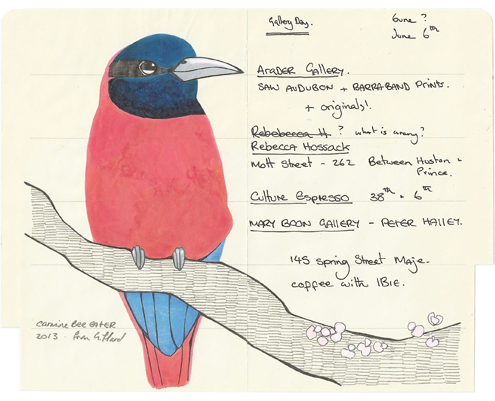 Gallery Day.
6une ?
June 6th
Arader Gallery.
Saw Audubon + Barraband Prints.
+ originals!.
Rebebecca H ? what is wrong?
Rebecca Hossack
Mott Street - 262 Between Huston &
Prince.
Culture Espresso 38th + 6th
Mary Boon Gallery - Peter Halley.
145 Spring Street Maje.
coffee with IBie.
Carmine Bee Eater
2013 -